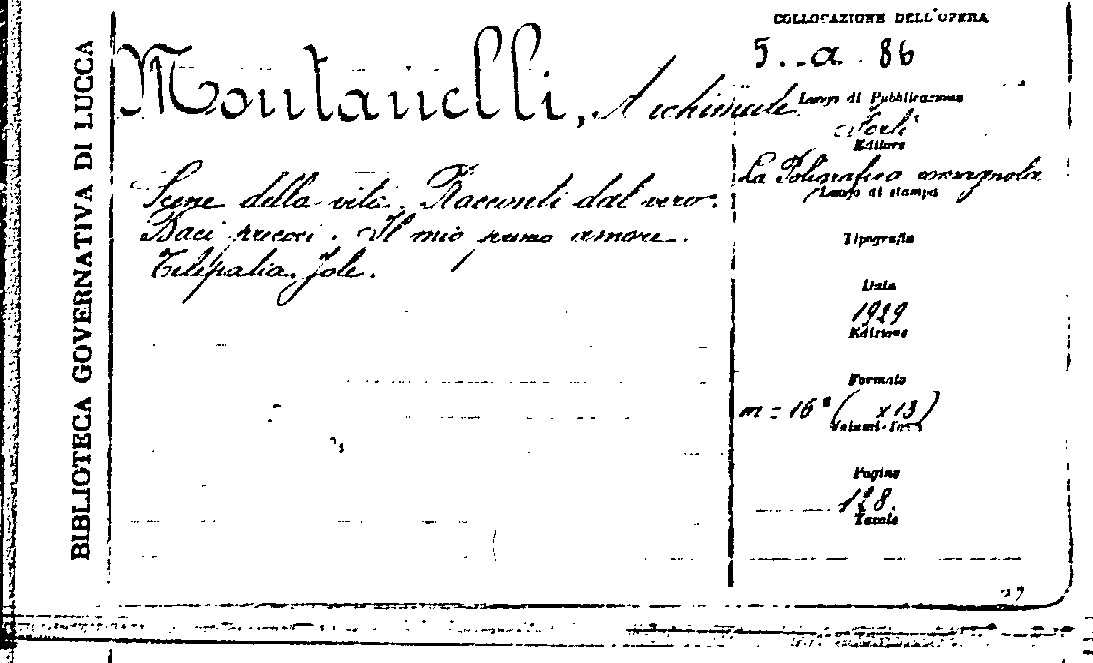 BIBLIOTECA GOVERNATIVA DI LUCCA
Montanelli, Archimede
Scene della vita. Racconti dal vero.
Baci precoci. Il mio primo amore.
Telepatia. Jole.
COLLOCAZIONE DELL'OPERA
5. a. 86
Luogo di Pubblicazione
Forlì
Editore
La Poligrafica romagnola
Luogo di stampa
Tipografia
Data
1929
Edizione
Formato
m = 16° ( x 13)
Volumi-Tomi
Pagine
128.
Tavole